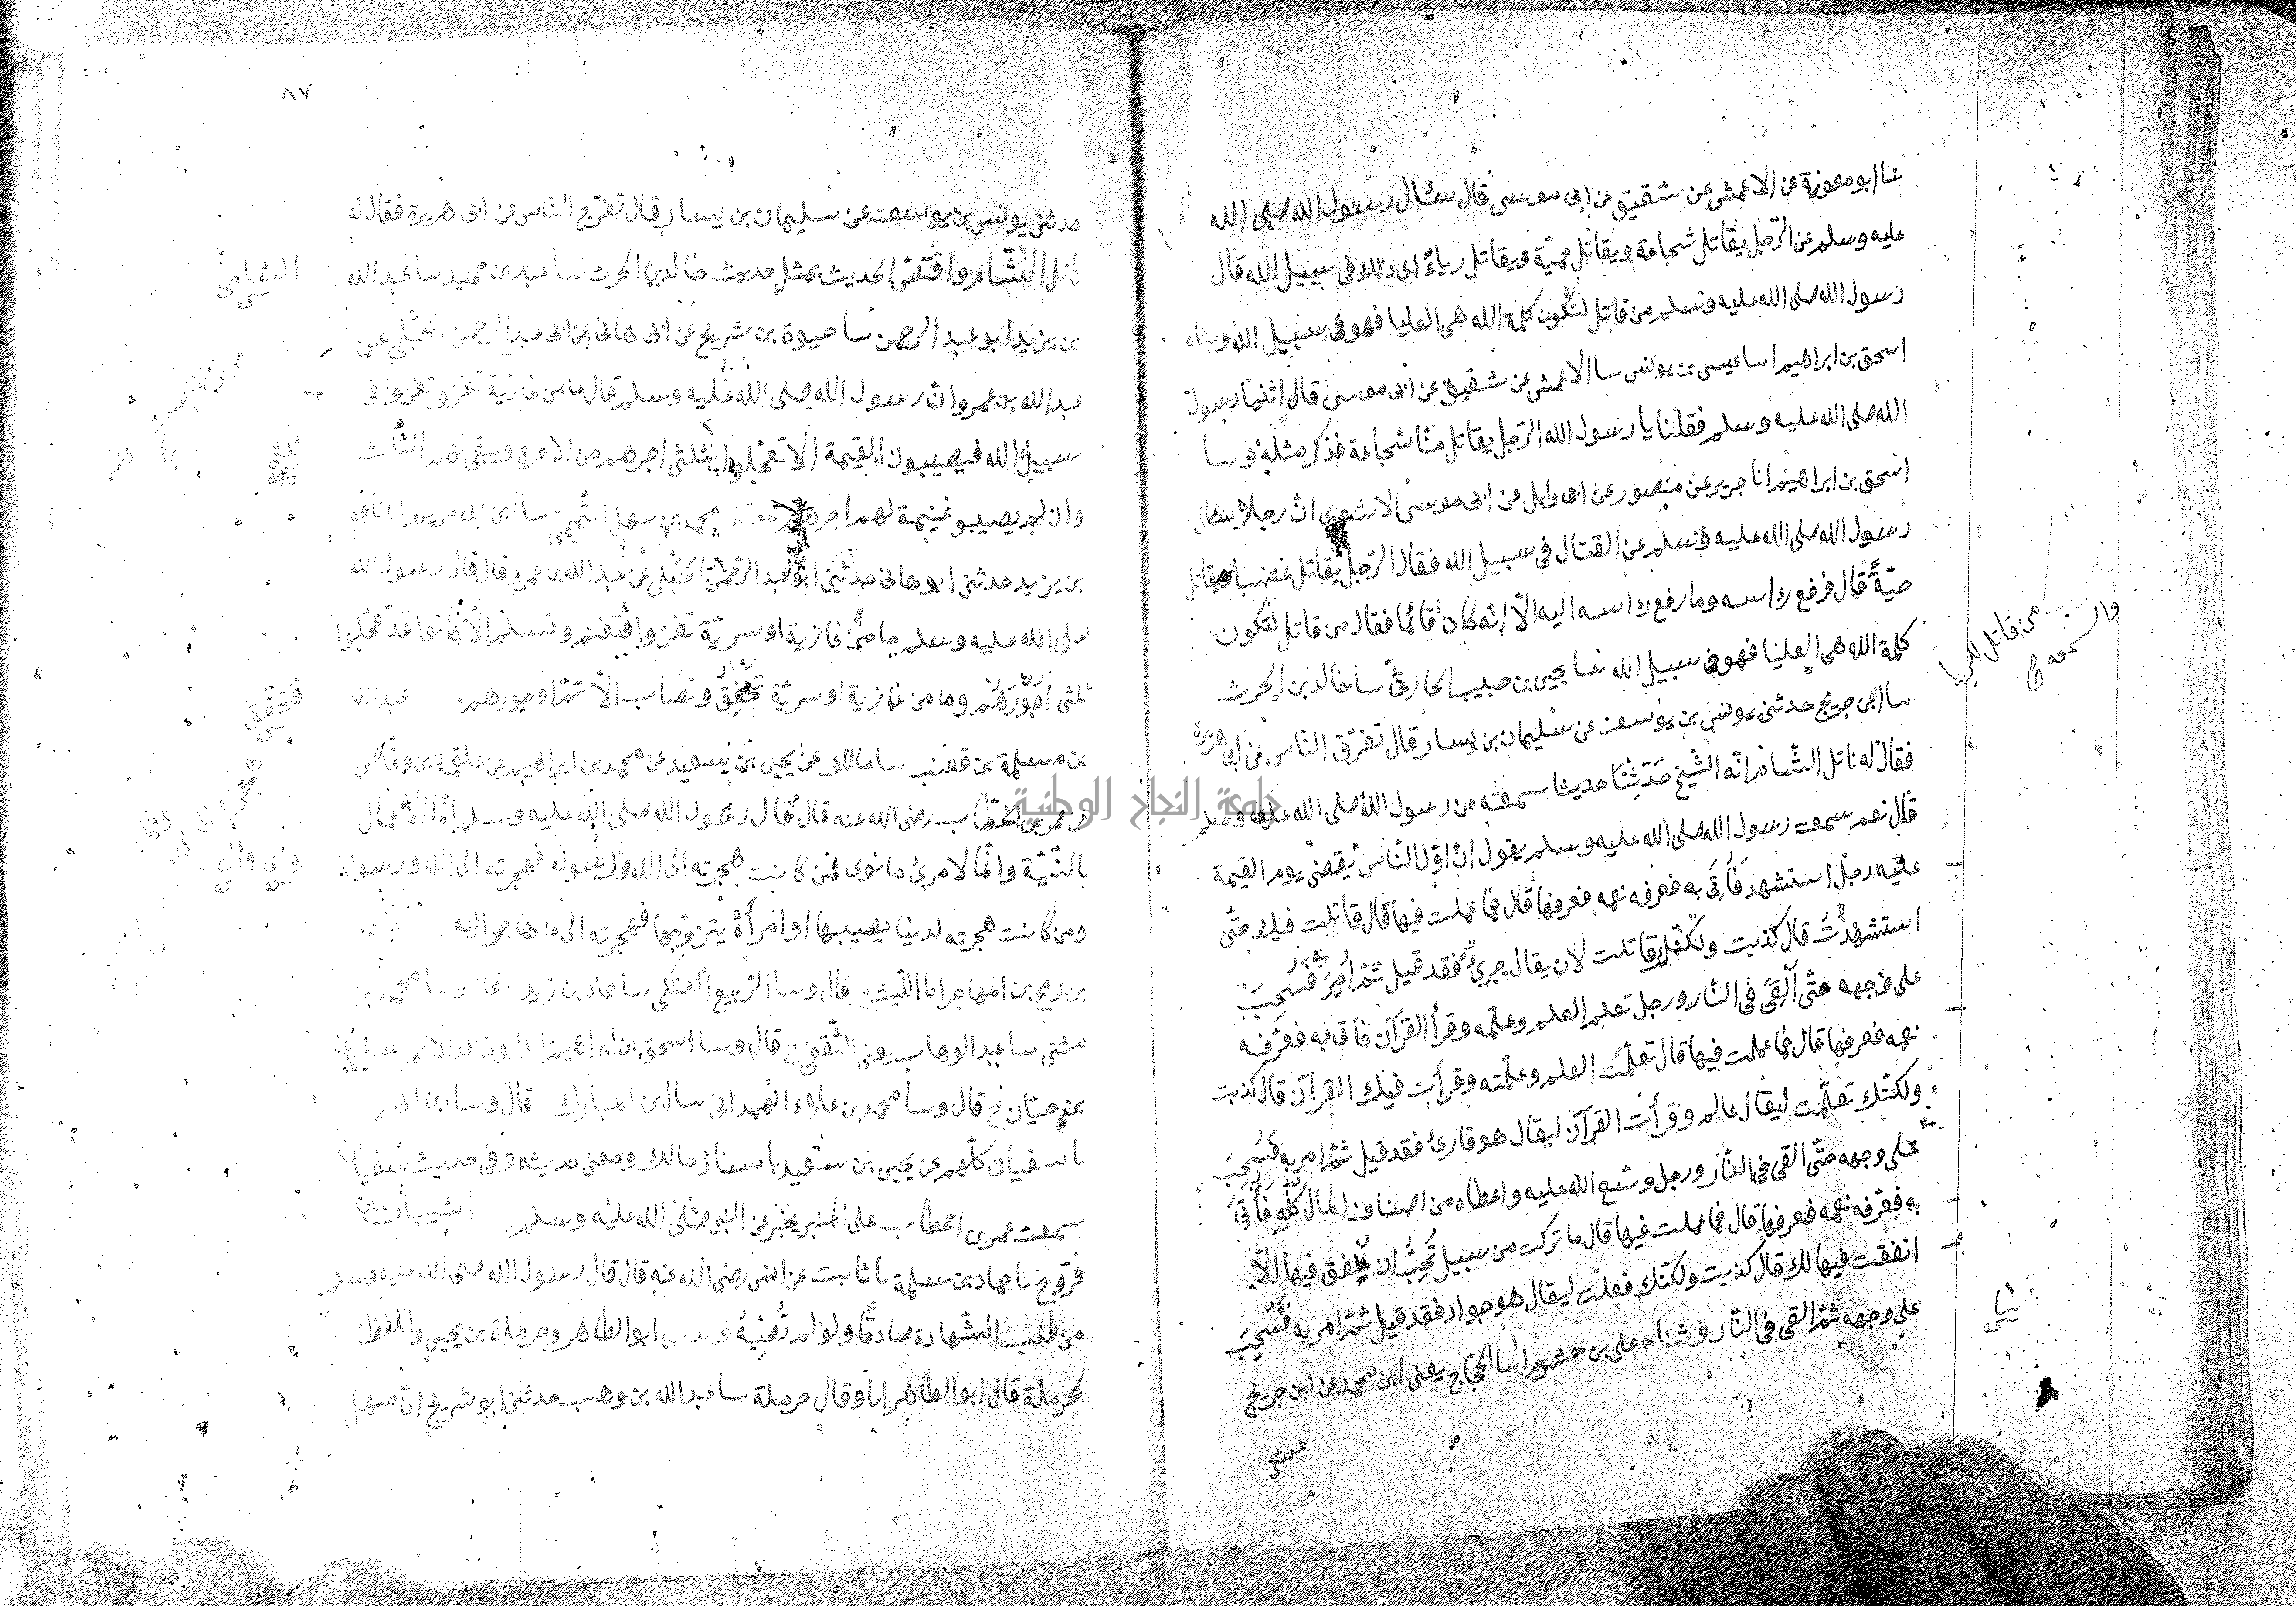 نا ابو معوية عن الاعمش عن شقيق عن ابى موسى قال سئال رسول الله صلى الله
عليه وسلم عن الرّجل يقاتل شجاعة ويقاتل حميّة ويقاتل رياءً اى ذلك فى سبيل الله قال
رسول الله صلى الله عليه وسلم من قاتل لتكون كلمة الله هى العليا فهو فى سبيل الله وساه
اسحق بن ابراهيم اسا عيسى بن يونس سا الاعمش عن شقيق عن ابى موسى قال اتينا رسول
الله صلى الله عليه وسلم فقلنا يا رسول الله الرّجل يقاتل منّا شجاعة فذكر مثله وسا
اسحق بن ابراهيم انا جرير عن منصور عن ابى وايل عن ابى موسى الاشعرى انّ رجلا سئال
رسول الله صلى الله عليه وسلم عن القتال فى سبيل الله فقال الرّجل يقاتل غضبا ويقاتل
حيّةً قال فرفع راسه وما رفع راسه اليه الّا انّه كان قائما فقال من قاتل لتكون
كلمة الله هى العليا فهو فى سبيل الله سا يحيى بن حبيب الحارثى سا خالد بن الحرث
سا ابن جريج حدثنى يونس بن يوسف عن سليمان بن يسار قال تفرّق النّاس عن ابى هريرة
فقال له ناتل الشّام ايّه الشّيخ حَدِّثْنَا حديثا سمعته من رسول الله صلى الله عليه وسلم
قال نعم سمعت رسول الله صلى الله عليه وسلم يقول انّ اوّل النّاس يُقضى يوم القيمة
عليه رجل استشهد فَأُتِىَ به فعرفه نعمه فعرفها قال فما عملت فيها قال قاتلت فيك حتّى
استشهدتُ قال كذبت ولكنّك قاتلت لان يقال جرئٌ فقد قيل ثمّ اُمِرَ به فَسُحِبَ
على وجهه حتّى اُلْقِىَ فى النّار ورجل تعلم العلم وعلّمه وقرأ القرآن فاتى به فعرّفه
نعمه فعرفها قال فما عملت فيها قال تعلّمت العلم وعلّمته وقرأت فيك القرآن قال كذبت
ولكنّك تعلّمت ليقال عالم وقرأت القرآن ليقال هو قارئ فقد قيل ثمّ امر به فَسُحِبَ
على وجهه حتّى القى فى النّار ورجل وسّع الله عليه واعطاه من اصناف المال كلّه فَأُتِىَ
به فعرّفه نعمه فعرفها قال فما عملت فيها قال ما تركت من سبيل تُحِبُّ ان يُنفق فيها الّا
انفقت فيها لك قال كذبت ولكنّك فعلت ليقال هو جواد فقد قيل ثمّ امر به فَسُحِبَ
على وجهه ثمّ القى فى النّار وثناه على بن خشرم انا الحجّاج يعنى ابن محمد عن ابن جريج
حدثنى
من قاتل للريا
والسمعه
٨٧
حدثنى يونس بن يوسف عن سليمان بن يسار قال تفرّج النّاس عن ابى هريرة فقال له
ناتل الشّام واقتصّ الحديث بمثل حديث خالد بن الحرث سا عبد بن حميد سا عبد الله
بن يزيد ابو عبد الرحمن سا حيوة بن شريح عن ابى هانى عن ابى عبد الرحمن الحُبُلى عن
عبد الله بن عمرو انّ رسول الله صلى الله عليه وسلم قال ما من غازية تغزو تغزوا فى
سبيل الله فيصيبون الغنيمة الا تعجّلوا ثلثى اجرهم من الاخرة ويبقى لهم الثّلث
وان لم يصيبو غنيمة لهم اجرهم محمد بن سهل التّميمى سا ابن ابى مريم انا نافع
بن يزيد حدثنى ابو هانى حدثنى ابو عبد الرّحمن الحُبُلى عن عبد الله بن عمرو قال قال رسول الله
صلى الله عليه وسلم ما من غازية او سريّة تغزوا فتغنم وتسلم الّا كانوا قد تعجّلوا
ثلثى اجورهم وما من غازية او سريّة تُخْفِقُ وتصاب الّا تمّ اجورهم عبد الله
بن مسلمة بن قعنب سا مالك عن يحيى بن سعيد عن محمد بن ابراهيم عن علقمة بن وقّاص
عن عمر بن الخطّاب رضى الله عنه قال قال رسول الله صلى الله عليه وسلم انّما الاعمال
بالنّيّة وانّما لامرئ ما نوى فمن كانت هجرته الى الله ورسوله فهجرته الى الله ورسوله
ومن كانت هجرته لدنيا يصيبها او امرأة يتزوّجها فهجرته الى ما هاجر اليه
بن رمح بن المهاجر انا اللّيث ح قال وسا ابو الرّبيع العتكى سا حماد بن زيد قال وسا محمد بن
مثنى سا عبد الوهاب يعنى الثّقفى ح قال وسا اسحق بن ابراهيم انا ابو خالد الاحمر سليمان
بن حيّان ح قال وسا محمد بن علاء الهمدانى سا ابن المبارك قال وسا ابن ابى عمر
نا سفيان كلّهم عن يحيى بن سعيد باسناد مالك ومعنى حديثه وفى حديث سفيان
سمعت عمر بن الخطاب على المنبر يخبر عن النبى صلى الله عليه وسلم شيبان بن
فرّوخ نا حماد بن سلمة نا ثابت عن انس رضى الله عنه قال قال رسول الله صلى الله عليه وسلم
من طلب الشّهادة صادقًا ولو لم تُصِبْهُ ابو الطاهر وحرملة بن يحيى واللفظ
لحرملة قال ابو الطاهر انا وقال حرملة سا عبد الله بن وهب حدثنى ابو شريح انّ سهل
الشامى
ثلثى
فتخفق
جامعة النجاح الوطنية